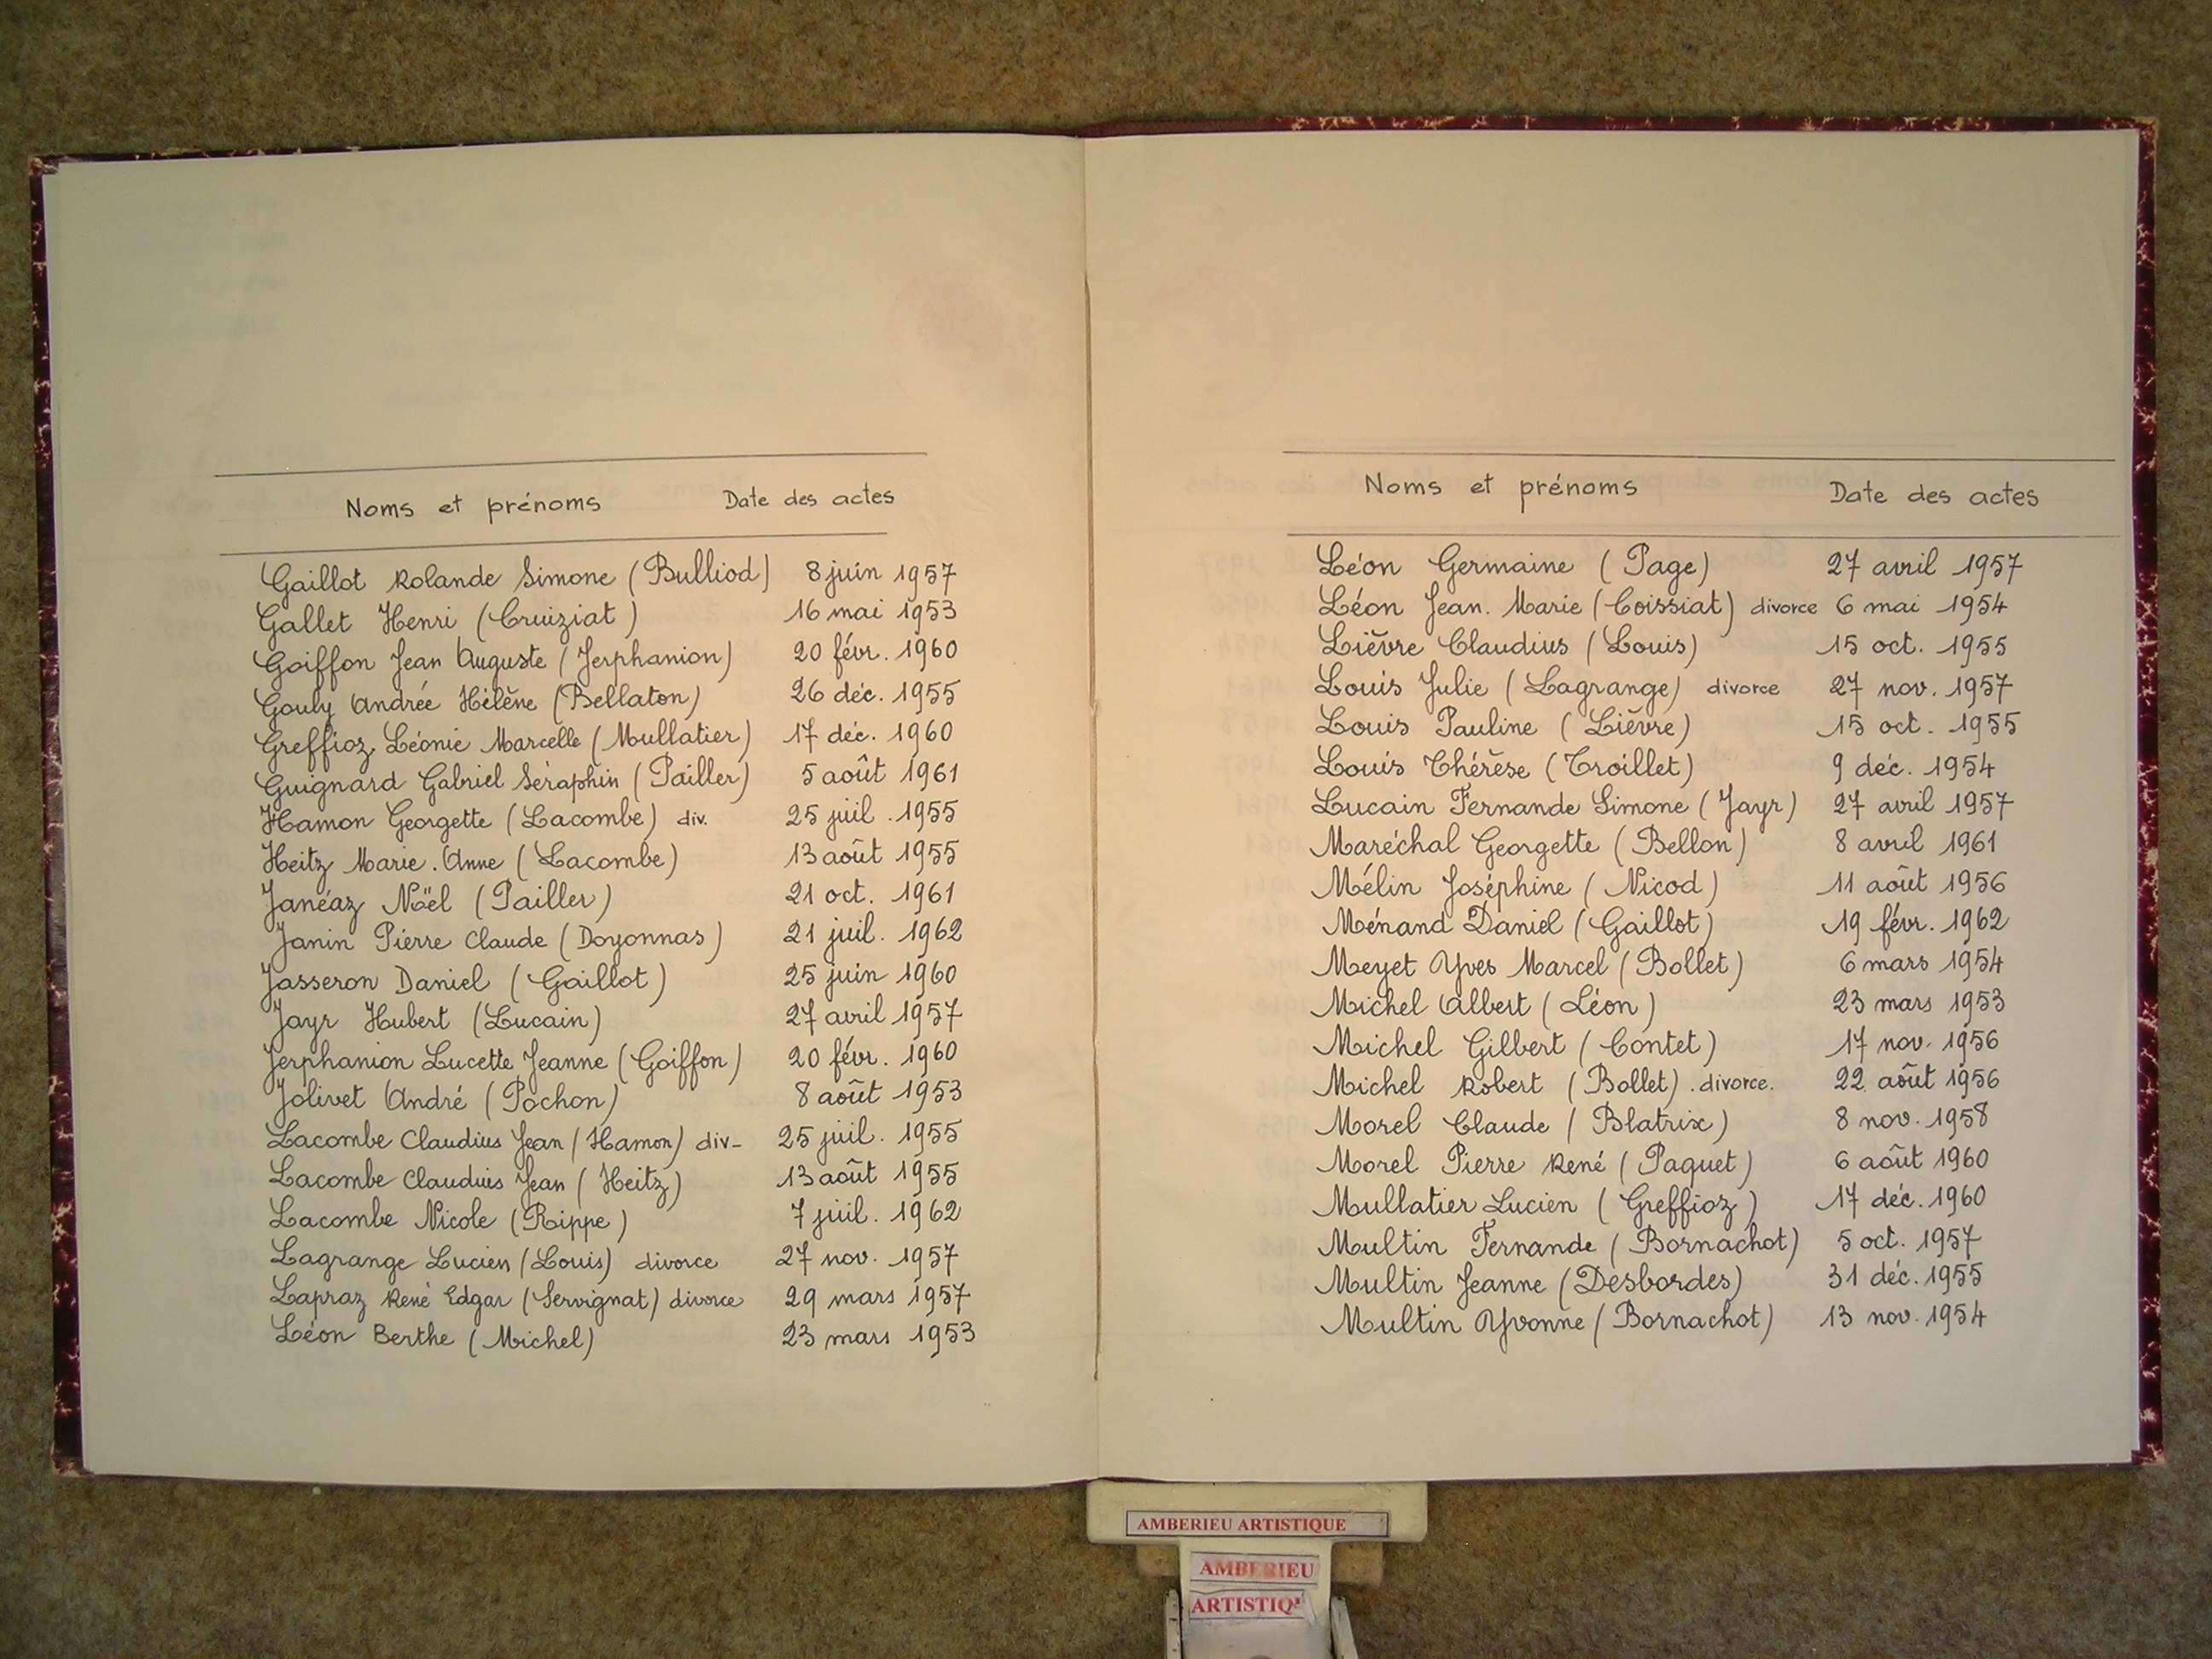 Noms et prénoms Date des actes
Gaillot Rolande Simone (Bulliod) 8 juin 1957
Gallet Henri (Cruiziat) 16 mai 1953
Goiffon Jean Auguste (Jerphanion) 20 févr. 1960
Gouly Andrée Hélène (Bellaton) 26 déc. 1955
Greffioz Léonie Marcelle (Mullatier) 17 déc. 1960
Guignard Gabriel Séraphin (Pailler) 5 août 1961
Hamon Georgette (Lacombe) div. 25 juil. 1955
Heitz Marie.Anne (Lacombe) 13 août 1955
Janéaz Noël (Pailler) 21 oct. 1961
Janin Pierre Claude (Doyonnas) 21 juil. 1962
Jasseron Daniel (Gaillot) 25 juin 1960
Jayr Hubert (Lucain) 27 avril 1957
Jerphanion Lucette Jeanne (Goiffon) 20 févr. 1960
Jolivet André (Pochon) 8 août 1953
Lacombe Claudius Jean (Hamon) div- 25 juil. 1955
Lacombe Claudius Jean (Heitz) 13 août 1955
Lacombe Nicole (Rippe) 7 juil. 1962
Lagrange Lucien (Louis) divorce 27 nov. 1957
Lapraz René Edgar (Servignat) divorce 29 mars 1957
Léon Berthe (Michel) 23 mars 1953
Noms et prénoms Date des actes
Léon Germaine (Page) 27 avril 1957
Léon Jean.Marie (Coissiat) divorce 6 mai 1954
Lièvre Claudius (Louis) 15 oct. 1955
Louis Julie (Lagrange) divorce 27 nov. 1957
Louis Pauline (Lièvre) 15 oct. 1955
Louis Thérèse (Troillet) 9 déc. 1954
Lucain Fernande Simone (Jayr) 27 avril 1957
Maréchal Georgette (Bellon) 8 avril 1961
Mélin Joséphine (Nicod) 11 août 1956
Ménand Daniel (Gaillot) 19 févr. 1962
Meyet Yves Marcel (Bollet) 6 mars 1954
Michel Albert (Léon) 23 mars 1953
Michel Gilbert (Contet) 17 nov. 1956
Michel Robert (Bollet). divorce. 22 août 1956
Morel Claude (Blatrix) 8 nov. 1958
Morel Pierre René (Paquet) 6 août 1960
Mullatier Lucien (Greffioz) 17 déc. 1960
Multin Fernande (Bornachot) 5 oct. 1957
Multin Jeanne (Desbordes) 31 déc. 1955
Multin Yvonne (Bornachot) 13 nov. 1954
AMBERIEU ARTISTIQUE
AMBERIEU
ARTISTIQ